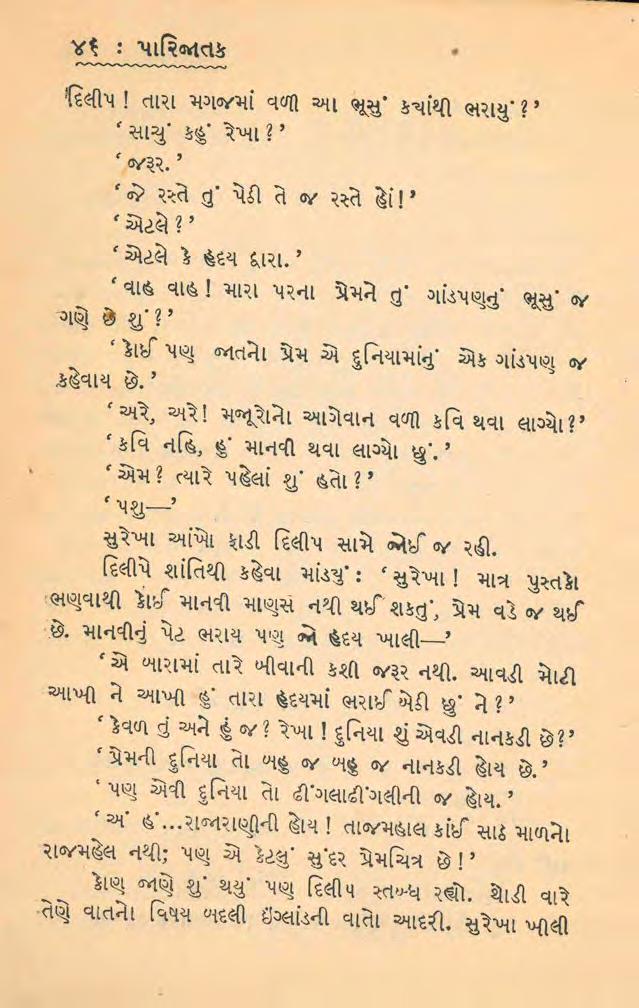 ૪૬ : પારિજાતક
'દિલીપ ! તારા મગજમાં વળી આ ભૂસું કયાંથી ભરાયું ?'
'સાચું કહું રેખા ?'
'જરૂર.'
'જે રસ્તે તું પેઠી તે જ રસ્તે હોં!'
'એટલે ?'
'એટલે કે હૃદય દ્વારા.'
'વાહ વાહ ! મારા પરના પ્રેમને તું ગાંડપણનું ભૂસું જ
ગણે છે શું ?'
'કોઈ પણ જાતનો પ્રેમ એ દુનિયામાંનું એક ગાંડપણ જ
કહેવાય છે.'
'અરે, અરે! મજૂરોનો આગેવાન વળી કવિ થવા લાગ્યો ?'
'કવિ નહિ, હું માનવી થવા લાગ્યો છું.'
'એમ ? ત્યારે પહેલાં શું હતો ?'
'પશુ—'
સુરેખા આંખો ફાડી દિલીપ સામે જોઈ જ રહી.
દિલીપે શાંતિથી કહેવા માંડયું : 'સુરેખા ! માત્ર પુસ્તકો
ભણવાથી કોઈ માનવી માણસ નથી થઈ શકતું, પ્રેમ વડે જ થઈ
છે. માનવીનું પેટ ભરાય પણ જો હૃદય ખાલી—'
'એ બારામાં તારે બીવાની કશી જરૂર નથી. આવડી મોટી
આખી ને આખી હું તારા હૃદયમાં ભરાઈ બેઠી છું ને ?'
'કેવળ તું અને હું જ ? રેખા ! દુનિયા શું એવડી નાનકડી છે?'
'પ્રેમની દુનિયા તો બહુ જ બહુ જ નાનકડી હોય છે.'
'પણ એવી દુનિયા તો ઢીંગલાઢીંગલીની જ હોય.'
'અં હં...રાજારાણીની હોય ! તાજમહાલ કાંઈ સાઠ માળનો
રાજમહેલ નથી; પણ એ કેટલું સુંદર પ્રેમચિત્ર છે !'
કોણ જાણે શું થયું પણ દિલીપ સ્તબ્ધ રહ્યો. થોડી વારે
તેણે વાતનો વિષય બદલી ઇંગ્લાંડની વાતો આદરી. સુરેખા ખીલી